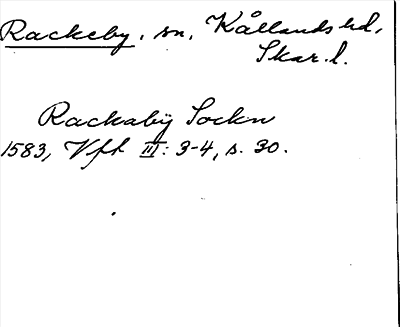 Rackeby, sn, Kållands hd,
Skar. l.
Rackaby Sockn
1583, Vft III: 3-4, s. 30.